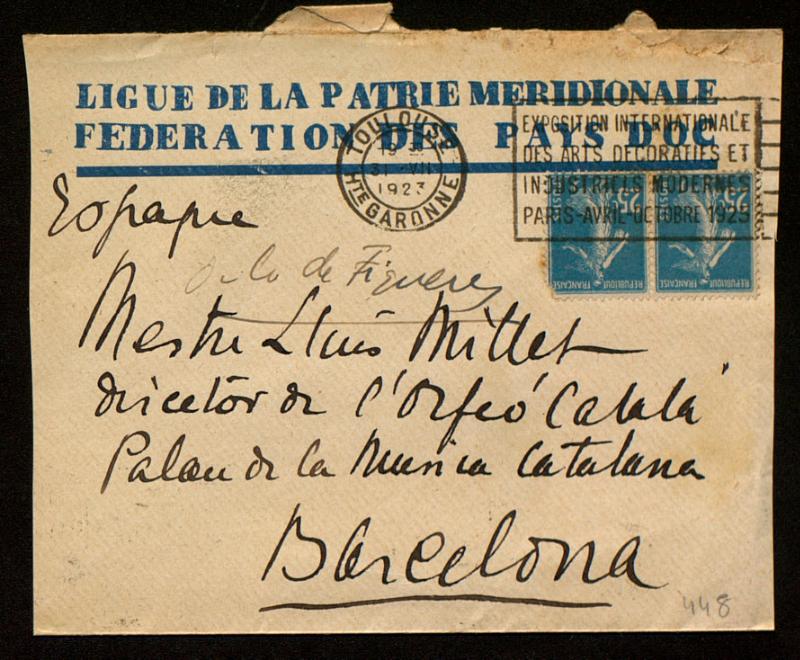 LIGUE DE LA PATRIE MERIDIONALE
FEDERATION DES PAYS D'OC
TOULOUSE
31 -VII
1923
HTE GARONNE
EXPOSITION INTERNATIONALE
DES ARTS DECORATIFS ET
INDUSTRIELS MODERNES
PARIS-AVRIL-OCTOBRE 1925
25c 25c
POSTES POSTES
REPUBLIQUE FRANÇAISE REPUBLIQUE FRANÇAISE
Espagne
de Figueres
Mestre Lluis Millet
director de l'Orfeó Català
Palau de la Musica Catalana
Barcelona
448